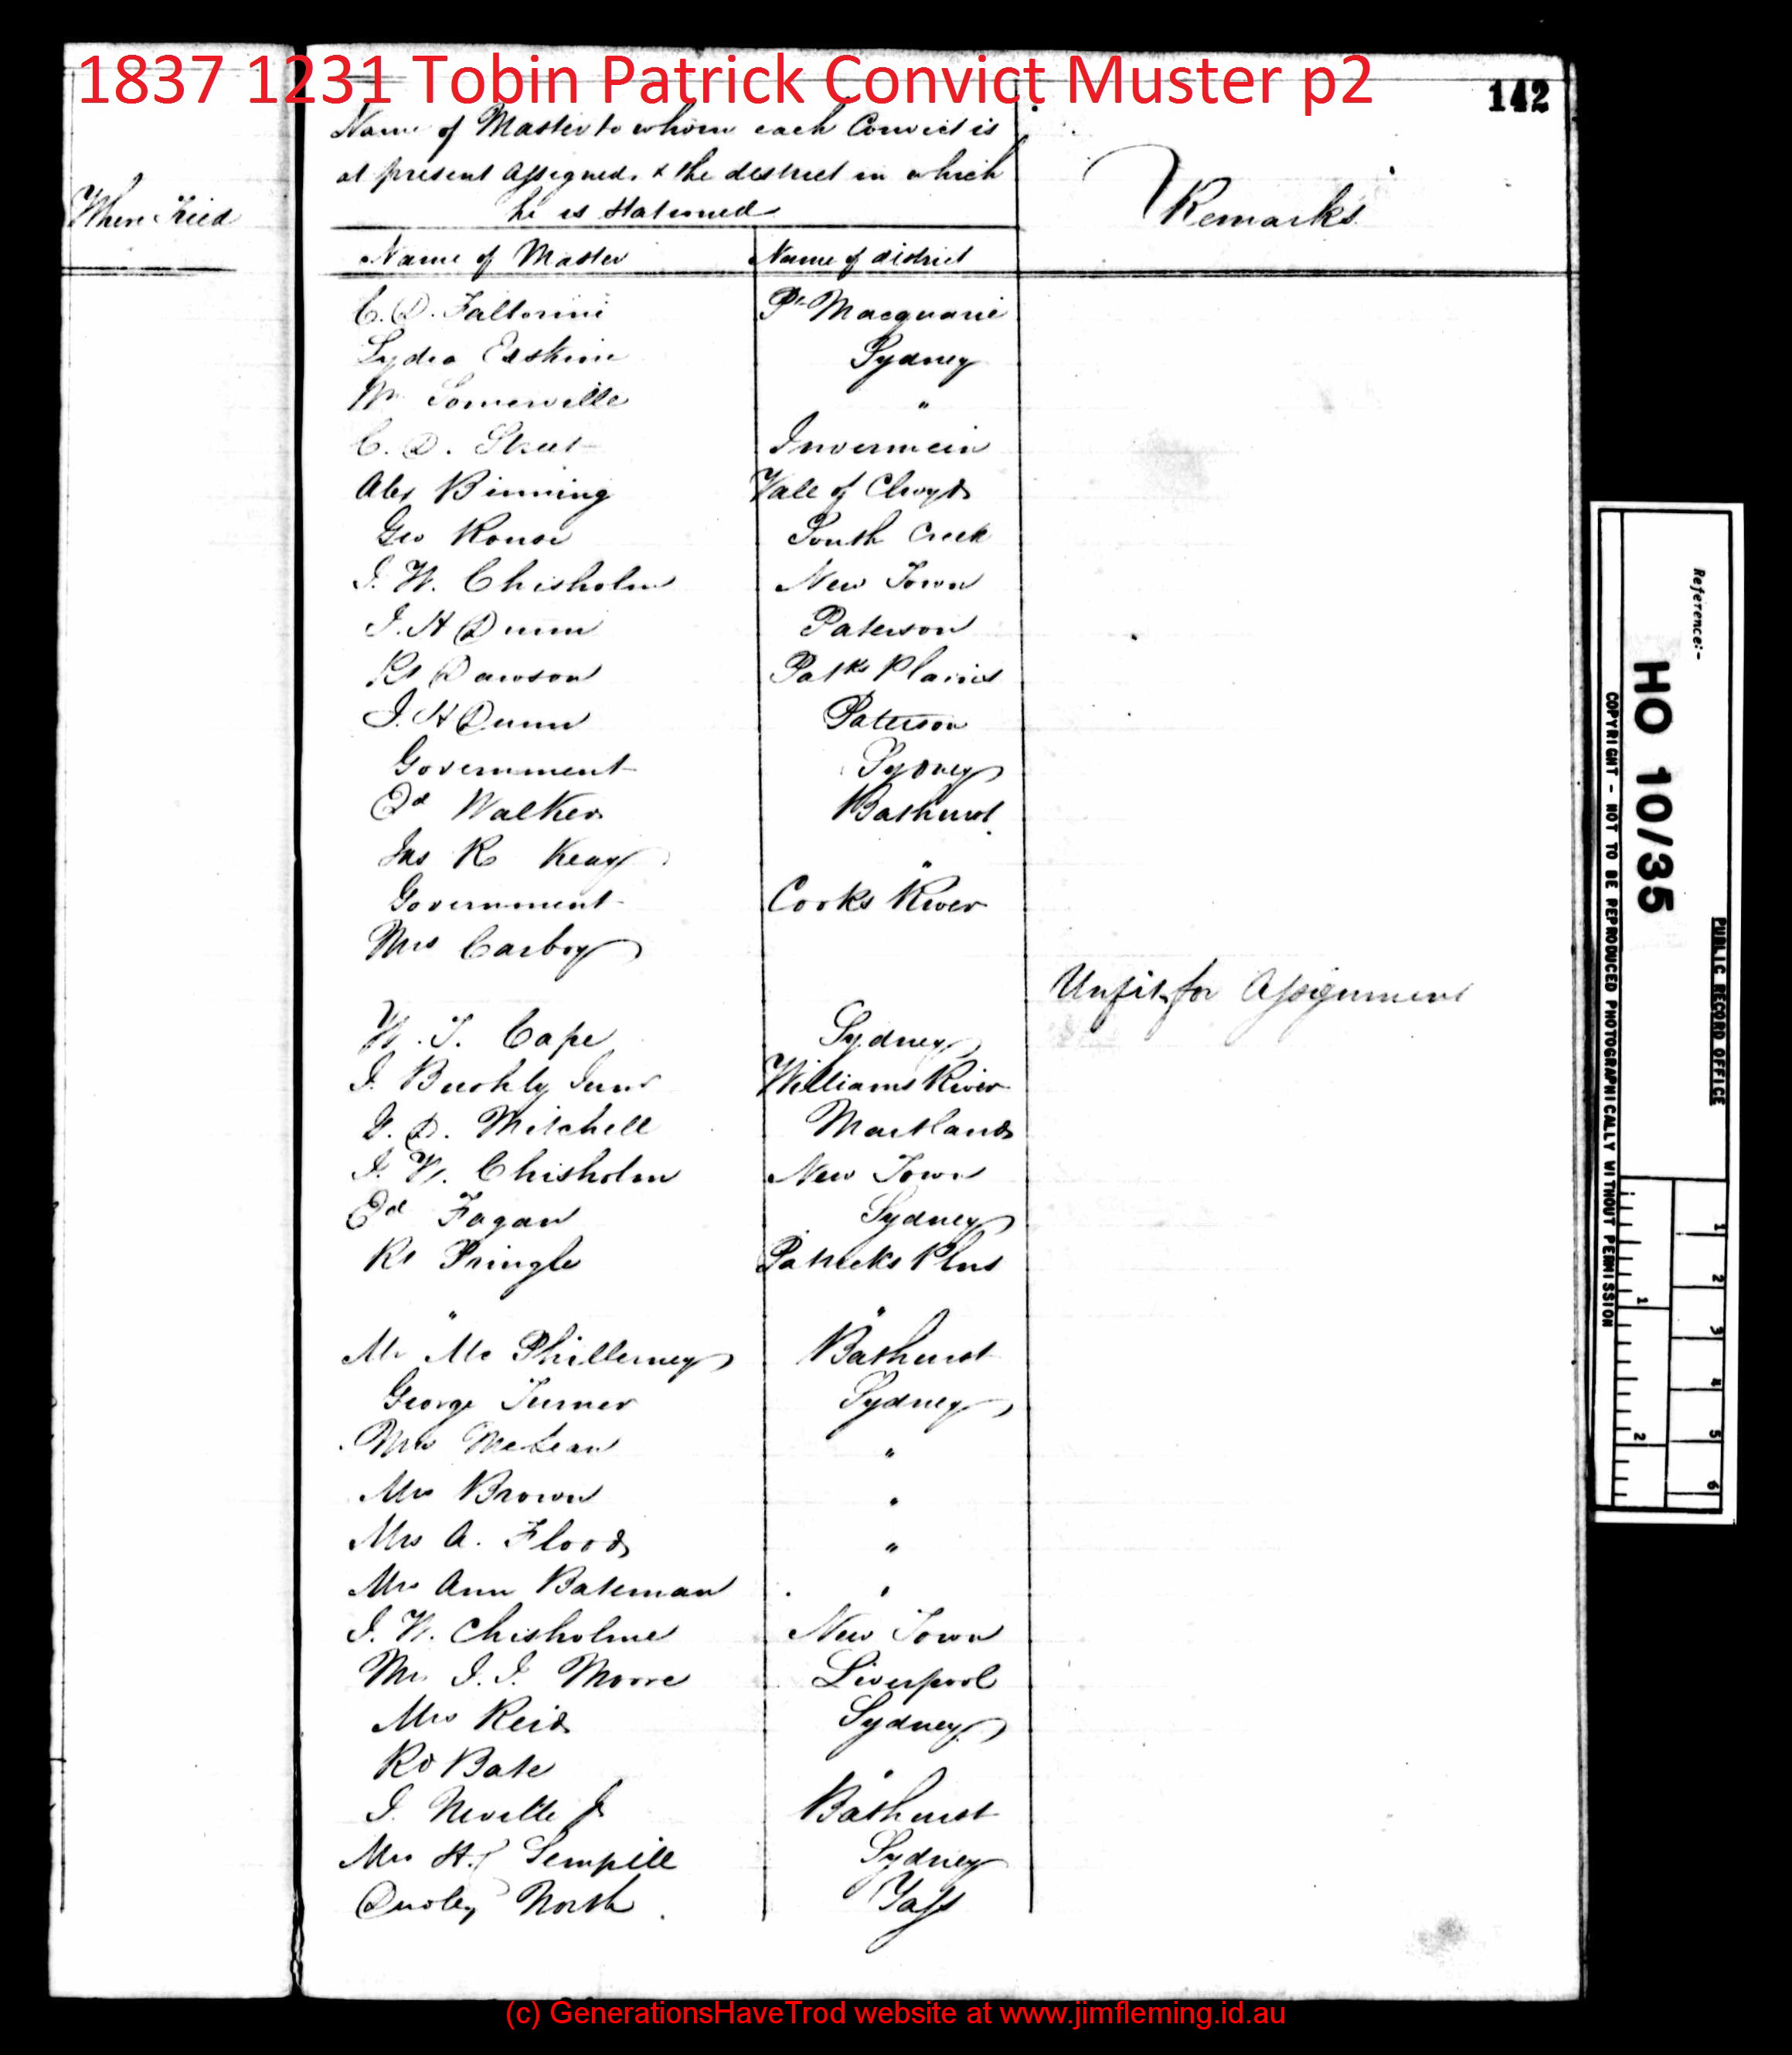 1837 1231 Tobin Patrick Convict Muster p2
142
Where Tried
Name of Master to whom each Convict is
at present assigned, & the district in which
he is stationed
Remarks
Name of Master Name of district
C. D. Faltorini Pt Macquarie
Lydia Erskine Sydney
Wm Somerville "
C. D. Street Invermein
Alex Binning Vale of Clwyd
Geo Rouse South Creek
J. W. Chisholm New Town
J. H Dunn Paterson
Rt Dawson Patks Plains
J. H Dunn Paterson
Government Sydney
Ed Walker Bathurst
Jas R Keay "
Government Cooks River
Mrs Carboy
Unfit for Assignment
W. T. Cape Sydney
J. Junr Williams River
G. D. Mitchell Maitland
J. W. Chisholm New Town
Ed Fagan Sydney
Rt Pringle Patricks Plns
" "
Mr Mc Phillemey Bathurst
George Turner Sydney
Mrs McLean "
Mrs Brown "
Mrs A. Flood "
Mrs Ann Bateman "
J. W. Chisholme New Town
Mr J. J. Moore Liverpool
Mrs Reid Sydney
Rd Bate "
J. Neville Jr Bathurst
Mrs H. Sempill Sydney
Dudley North Yass
Reference:-
HO 10/35
PUBLIC RECORD OFFICE
COPYRIGHT - NOT TO BE REPRODUCED PHOTOGRAPHICALLY WITHOUT PERMISSION
1 2
1 2 3 4 5 6
(c) GenerationsHaveTrod website at www.jimfleming.id.au